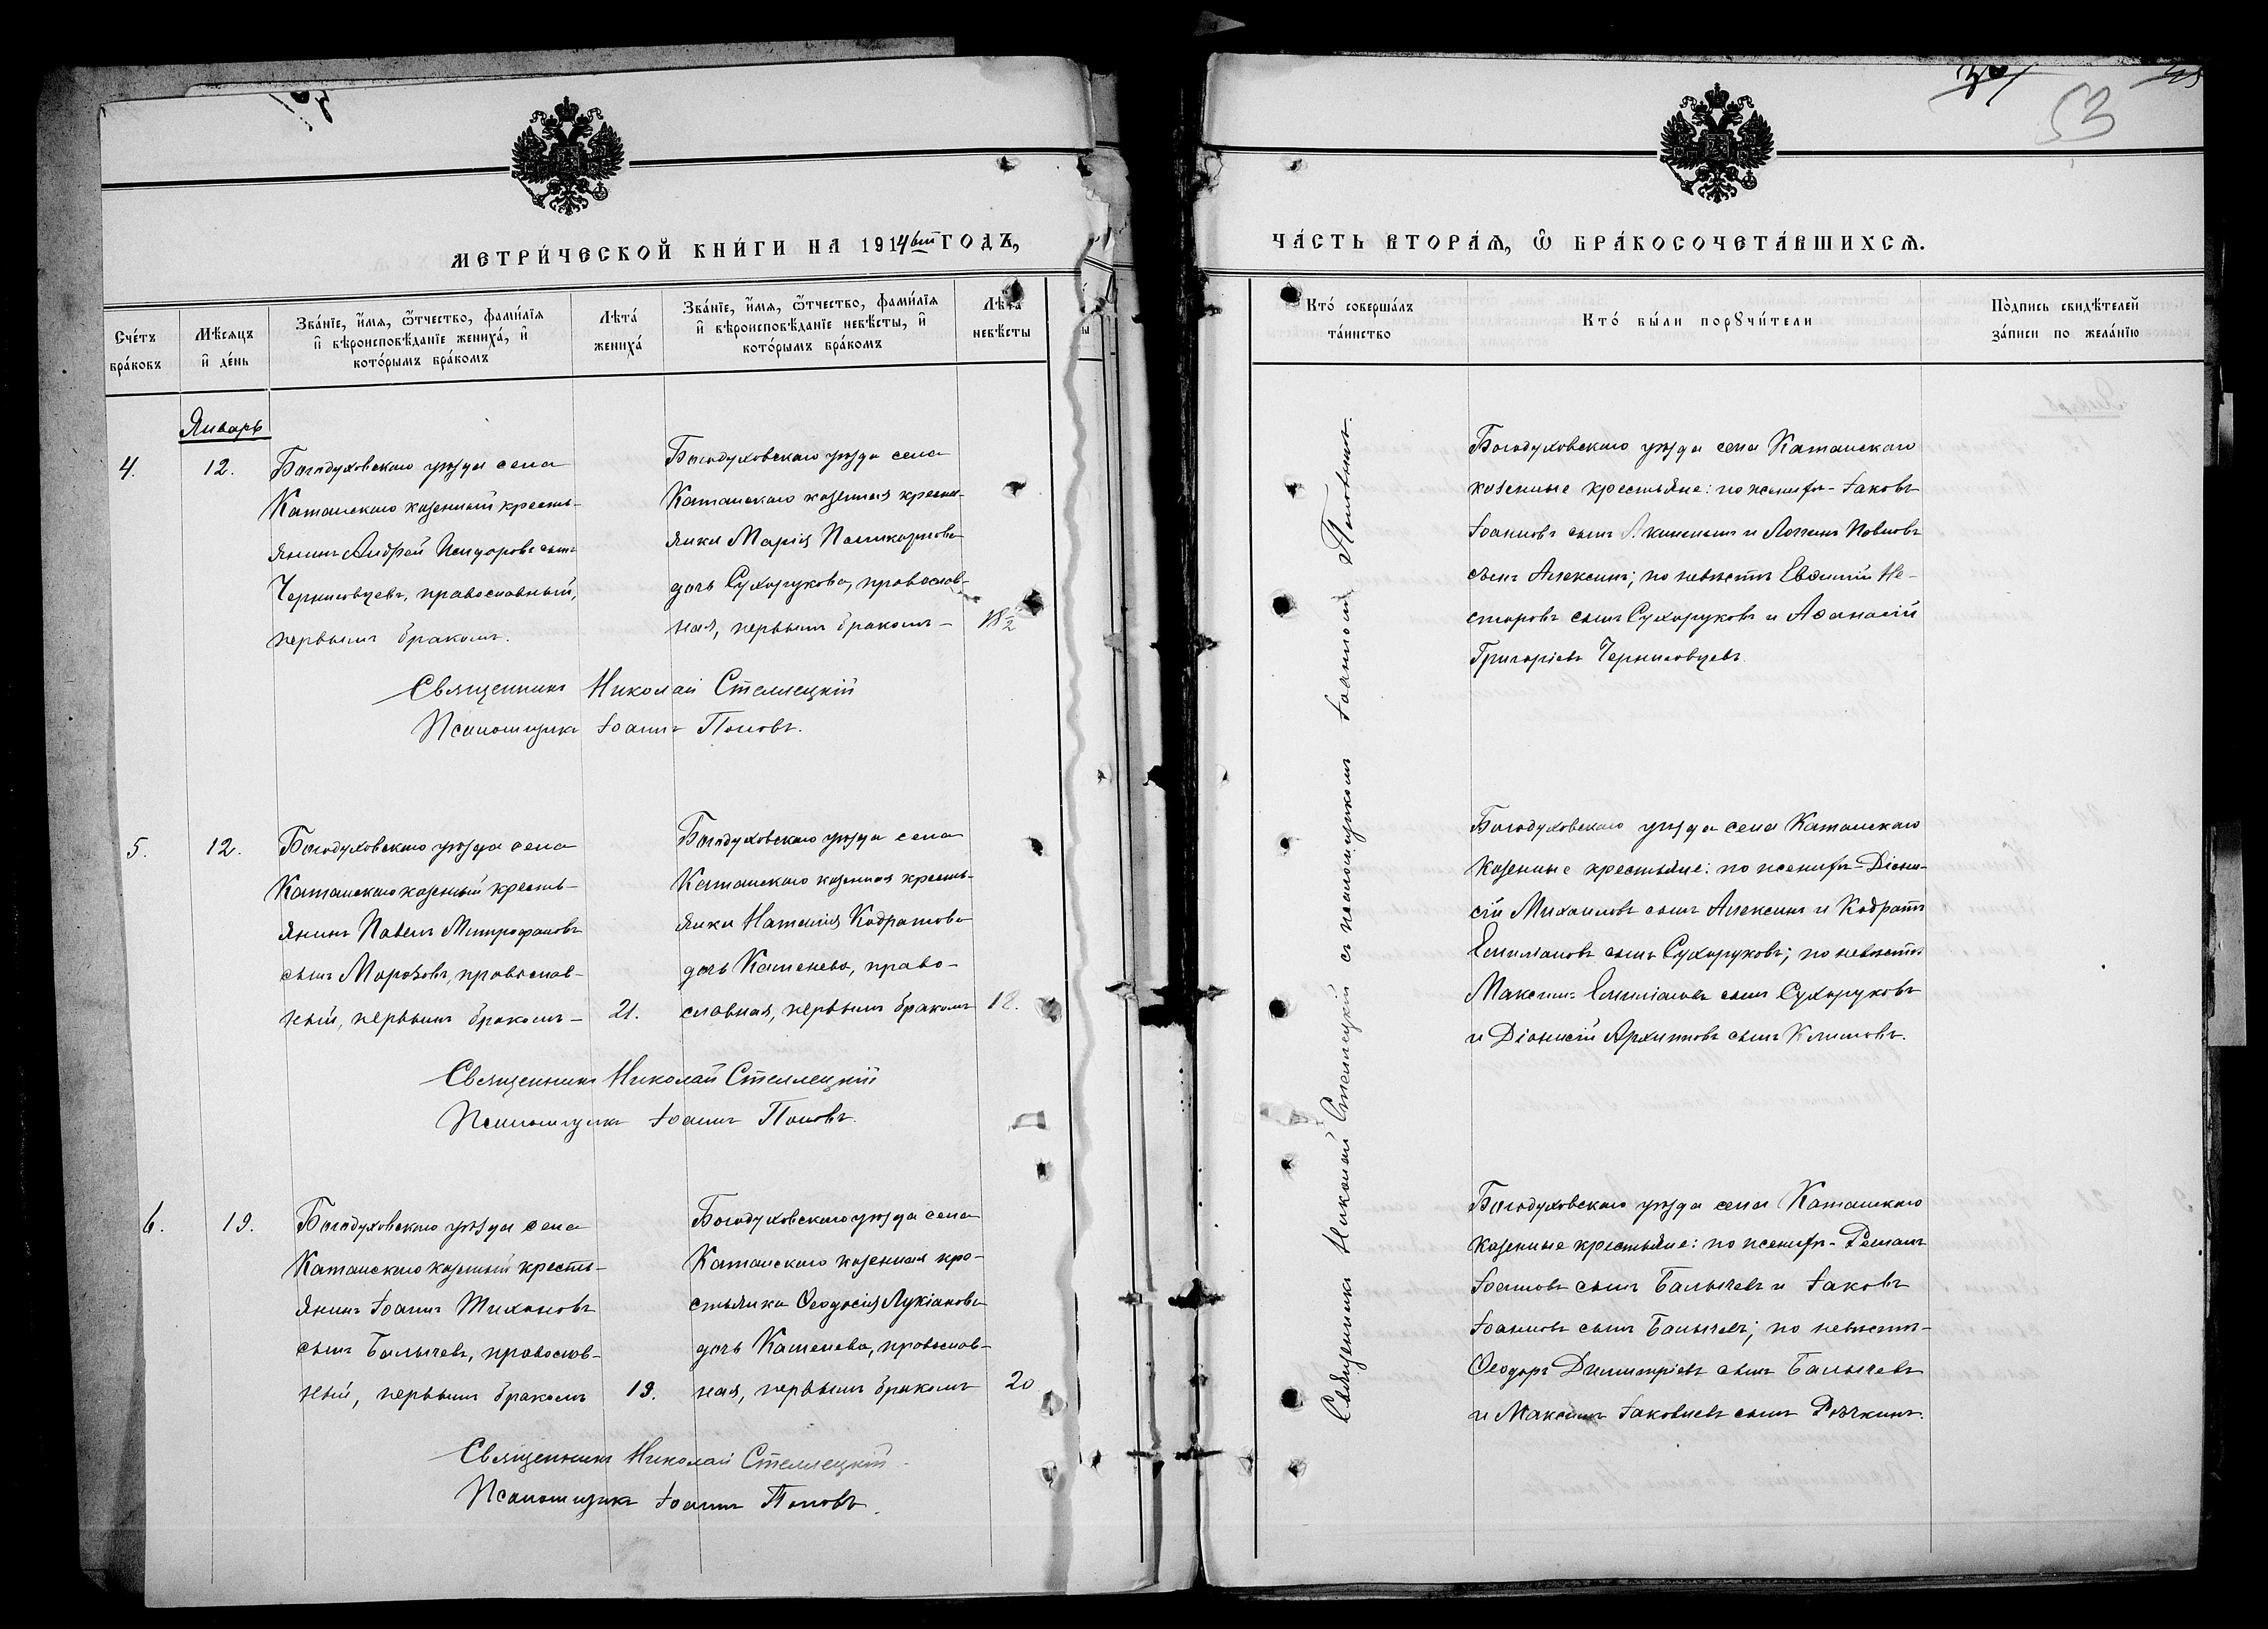 МЕТРИ́ЧЕСКОЙ КНИ́ГИ НА 1914ый ГОДЪ,
Сче́тъ бра́ковъ
Мѣ́сяцъ и҆ де́нь
Зва́нїе, и҆́мя, ѻ҆́тчество, фами́лїя
и҆ вѣроисповѣ́данїе жениха́, и҆
кото́рымъ бра́комъ
Лѣта́ жениха́
Зва́нїе, и҆́мя, ѻ҆́тчество, фами́лїя
и҆ вѣроисповѣ́данїе невѣ́сты, и҆
кото́рымъ бра́комъ
Лѣта́ невѣ́сты
Январь
4.
12.
Богодуховскаго уѣзда села
Катанскаго казенный кресть-
янинъ Андрей Исидоровъ сынъ
Черниловцевъ, православный,
первымъ бракомъ.
Богодуховскаго уѣзда села
Катанскаго казенная кресть-
янка Марія Поликарпова
дочь Сухорукова, православ-
ная, первымъ бракомъ –
18½
Священникъ Николай Стеллецкій
Псаломщикъ Іоаннъ Поповъ.
5.
12.
Богодуховскаго уѣзда села
Катанскаго казенный кресть-
янинъ Павелъ Митрофановъ
сынъ Морозовъ, православ-
ный, первымъ бракомъ –
21.
Богодуховскаго уѣзда села
Катанскаго казенная кресть-
янка Наталія Кодратова
дочь Каменева, право-
славная, первымъ бракомъ
18.
Священникъ Николай Стеллецкій
Псаломщикъ Іоаннъ Поповъ.
6.
19.
Богодуховскаго уѣзда села
Катанскаго казенный кресть-
янинъ Іоаннъ Тихоновъ
сынъ Балычевъ, православ-
ный, первымъ бракомъ
19.
Богодуховскаго уѣзда села
Катанскаго казенная кре-
стьянка Ѳеодосія Лукіанова
дочь Каменева, православ-
ная, первымъ бракомъ
20
Священникъ Николай Стеллецкій
Псаломщикъ Іоаннъ Поповъ.
53
ЧА́СТЬ ВТОРА́Ѧ, Ѽ БРА́КОСОЧЕТА́ВШИХСѦ.
Кто́ соверша́лъ та́инство
Кто́ бы́ли порꙋчи́тели
По́дпись свидѣ́телей
за́писи по жела́нїю
Священникъ Николай Стеллецкій съ псаломщикомъ Іоанномъ Поповымъ.
Богодуховскаго уѣзда села Катанскаго
казенные крестьяне: по женихѣ – Іаковъ
Іоанновъ сынъ и Логинъ Павловъ
сынъ Алексинъ; по невѣстѣ Евѳимій Не-
сторовъ сынъ Сухоруковъ и Аѳанасій
Григоріевъ Черниловцевъ.
Богодуховскаго уѣзда села Катанскаго
казенные крестьяне: по женихѣ – Діони-
сій Михаиловъ сынъ Алексинъ и Кодратъ
Емиліановъ сынъ Сухоруковъ; по невѣстѣ
Максимъ Емиліановъ сынъ Сухоруковъ
и Діонисій Архиповъ сынъ Климовъ.
Богодуховскаго уѣзда села Катанскаго
казенные крестьяне: по женихѣ – Романъ
Іоанновъ сынъ Балычевъ и Іаковъ
Іоанновъ сынъ Балычевъ; по невѣстѣ –
Ѳеодоръ Димитріевъ сынъ Балычевъ
и Максимъ Іаковлевъ сынъ Рѣчкинъ.